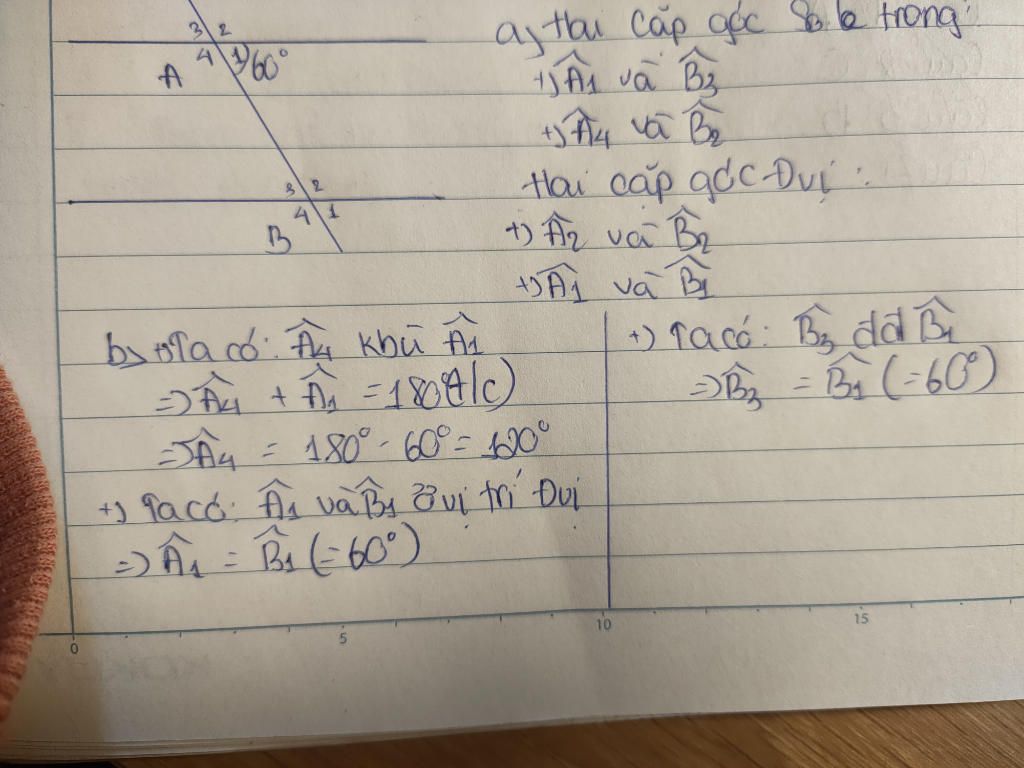 3 2
4 1 60°
A
3 2
4 1
B
a, Hai cặp góc So le trong:
+) Â1 và B̂3
+) Â4 và B̂2
Hai cặp góc Đvị:
+) Â2 và B̂2
+) Â1 và B̂1
b, +) Ta có: Â4 khù Â1
=> Â4 + Â1 = 180° (t/c)
=> Â4 = 180° - 60° = 120°
+) Ta có: Â1 và B̂1 ở vị trí Đvị
=> Â1 = B̂1 (=60°)
+) Ta có: B̂3 dđ B̂1
=> B̂3 = B̂1 (=60°)
0 5 10 15